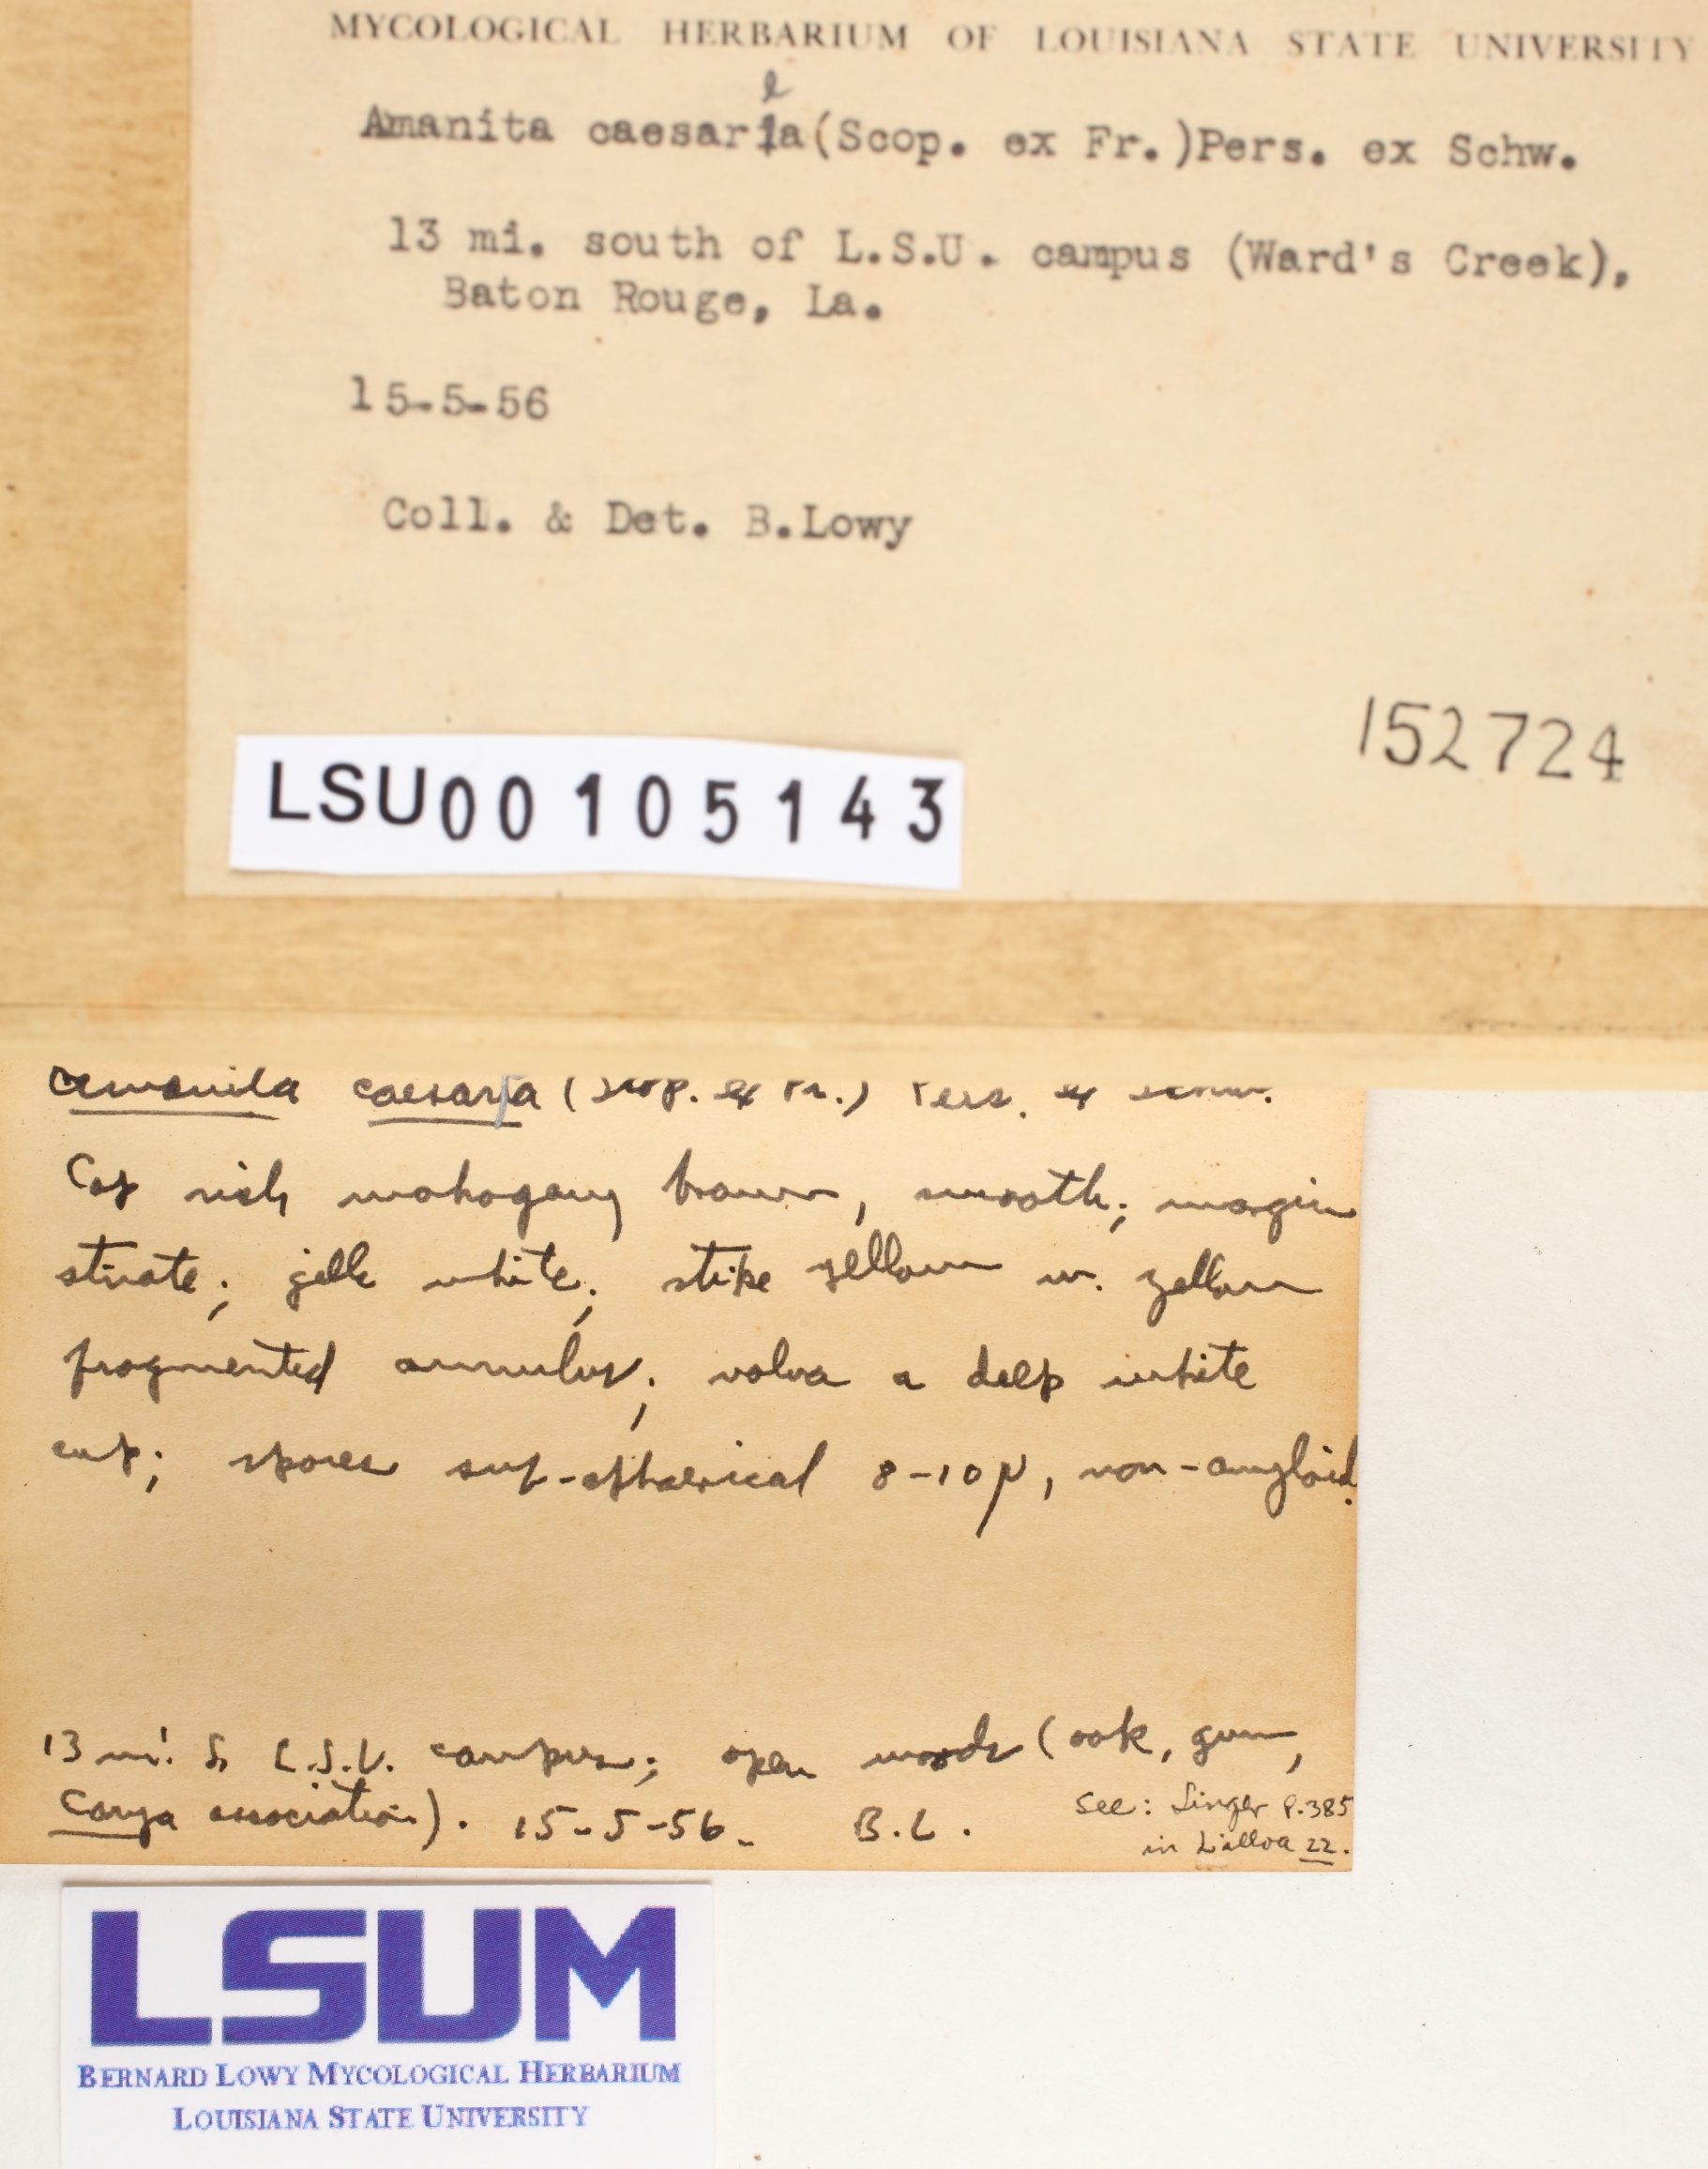 MYCOLOGICAL HERBARIUM OF LOUISIANA STATE UNIVERSITY
e
Amanita caesaria (Scop. ex Fr.)Pers. ex Schw.
13 mi. south of L.S.U. campus (Ward's Creek),
Baton Rouge, La.
15-5-56
Coll. & Det. B.Lowy
152724
LSU00105143
Amanita caesaria (Scop. ex Fr.) Pers. ex Schw.
Cap rich mahogany brown, smooth; margin
striate; gills white; stipe yellow w. yellow
fragmented annulus; volva a deep white
cup; spores sup-spherical 8-10μ, non-amyloid.
13 mi. S. L.S.U. campus; open woods (oak, gum,
Carya association). 15-5-56. B.L.
See: Singer P.385
in Lilloa 22.
LSUM
BERNARD LOWY MYCOLOGICAL HERBARIUM
LOUISIANA STATE UNIVERSITY